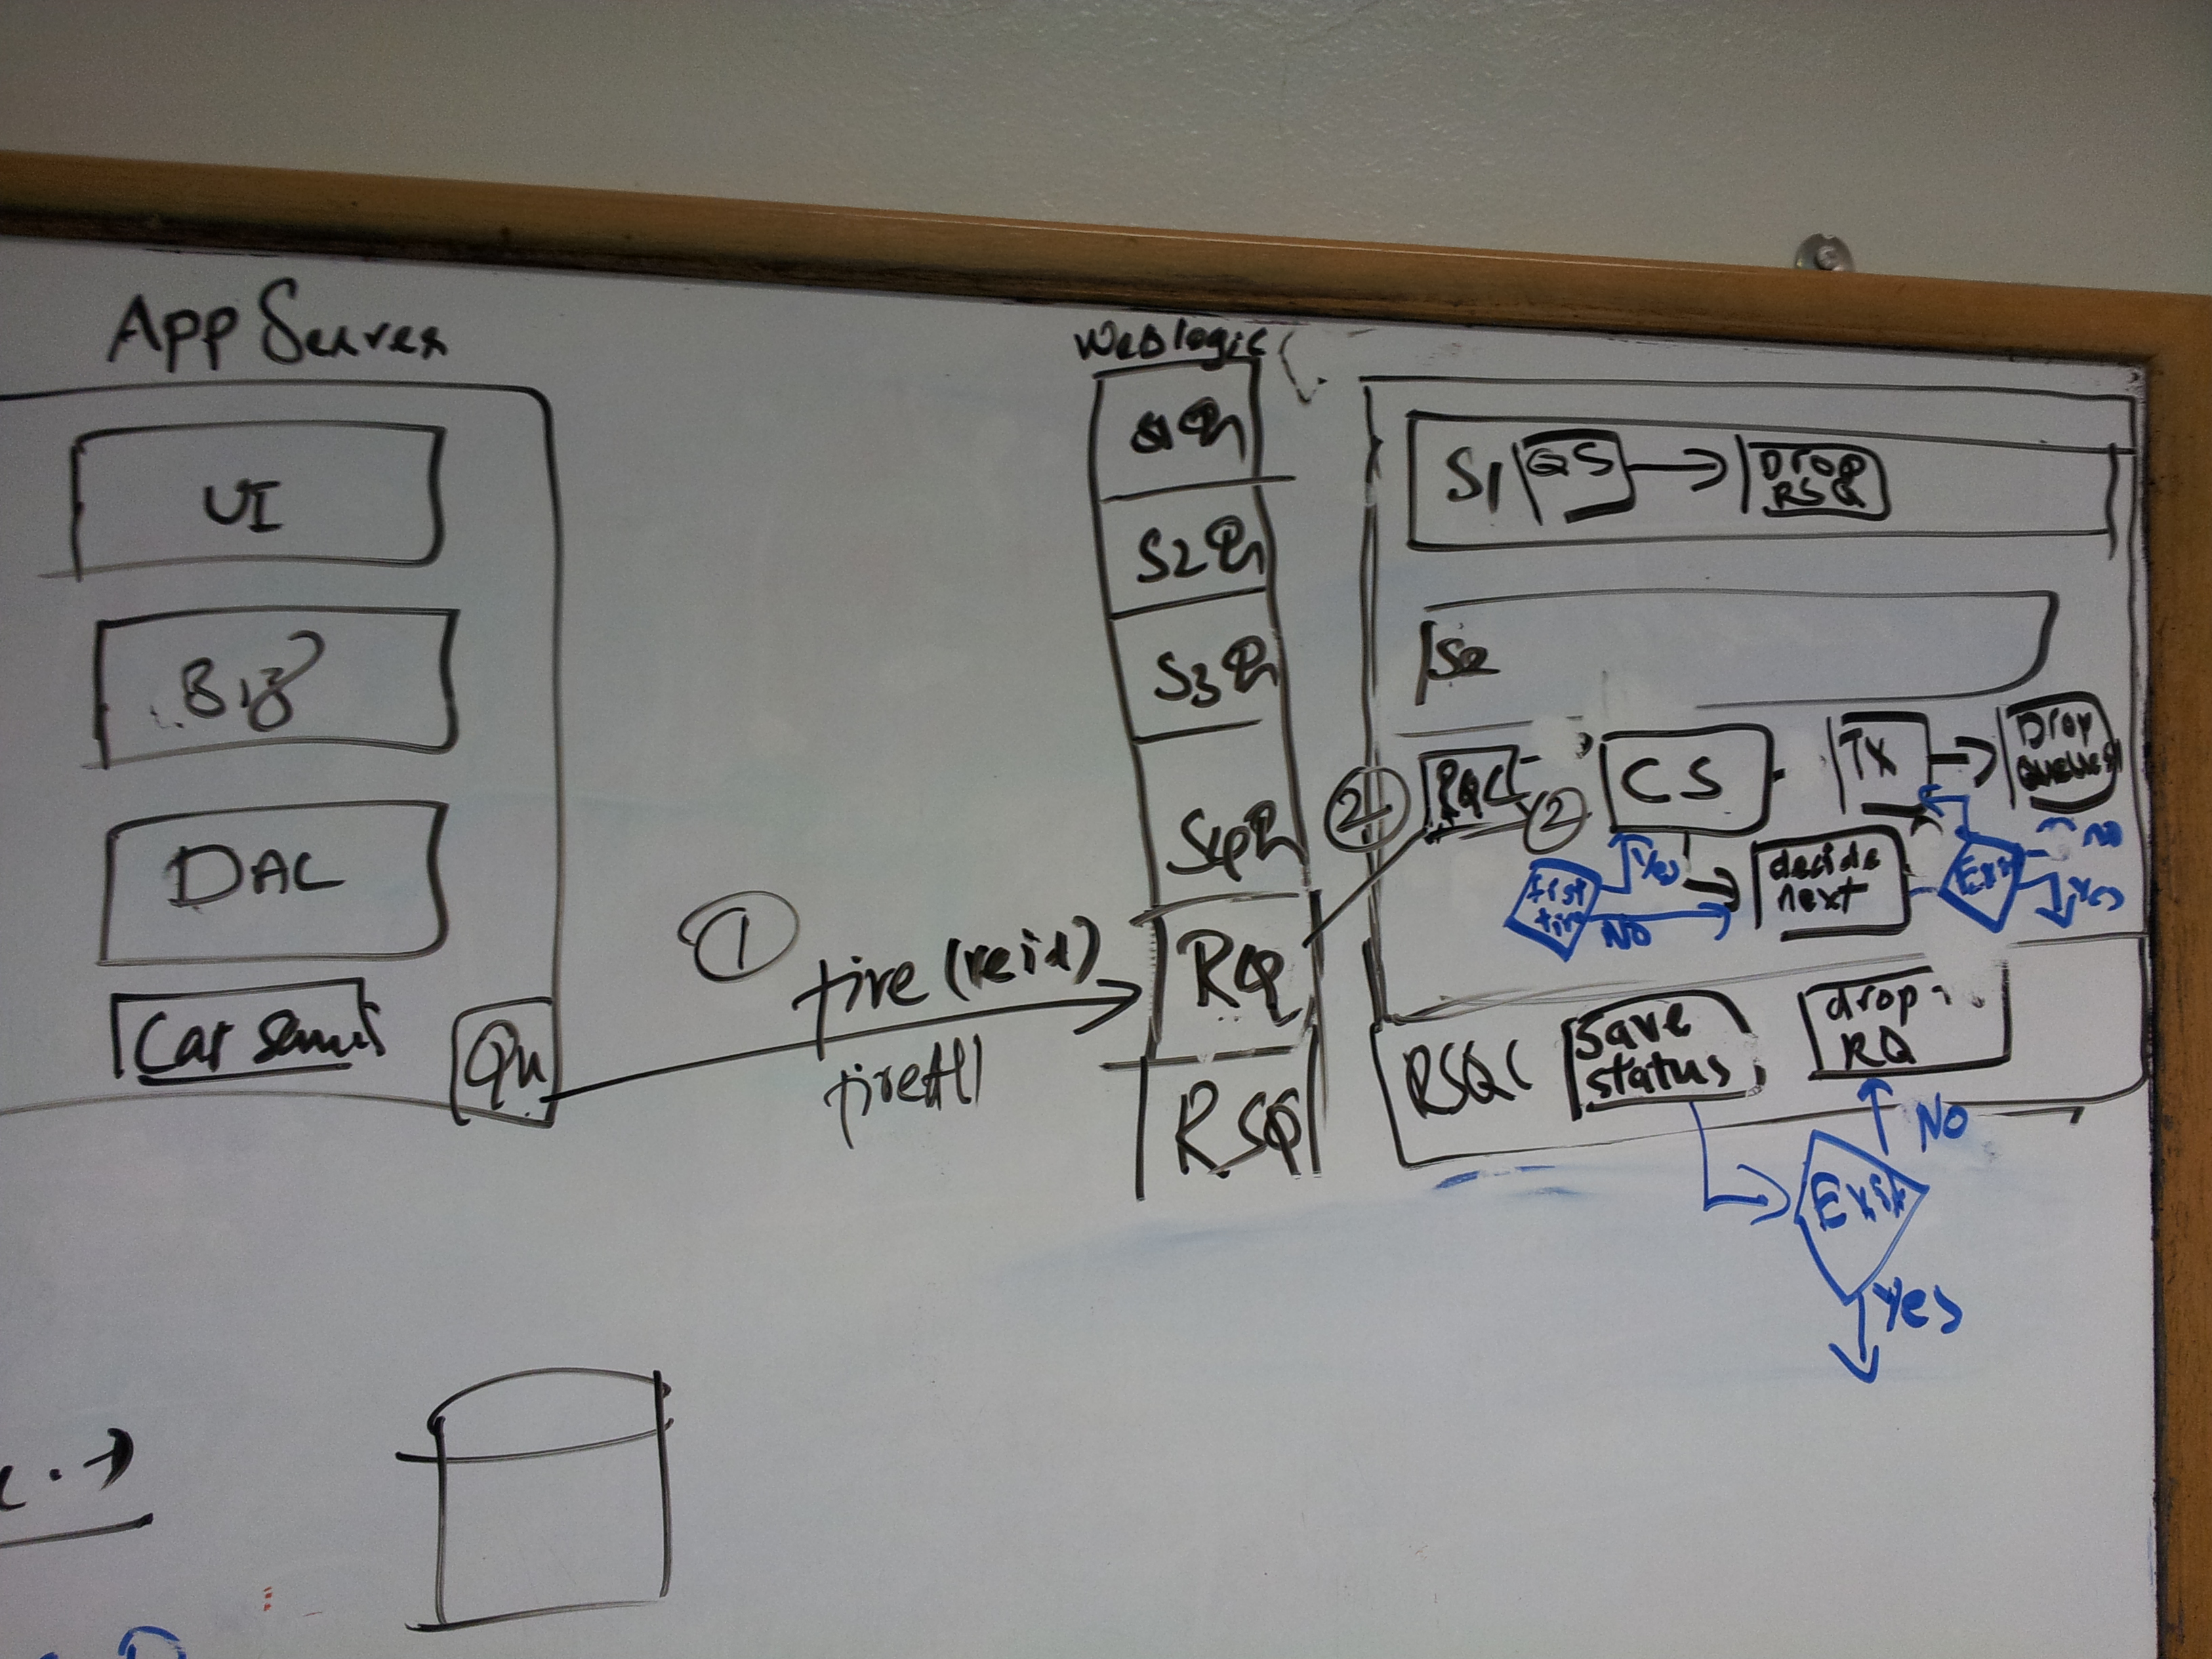 App Server
UI
Biz
DAC
Qu
1
fire (reid)
fireAll
Weblogic
S1Qu
S2Qu
S3Qu
RQ
RSQ
S1 QS
Drop
RSQ
S2
2
RQC
2
CS
TX
Drop
queues
first
time
Yes
NO
decide
next
Exit
NO
Yes
RSQC
Save
status
drop
RQ
NO
Exit
Yes